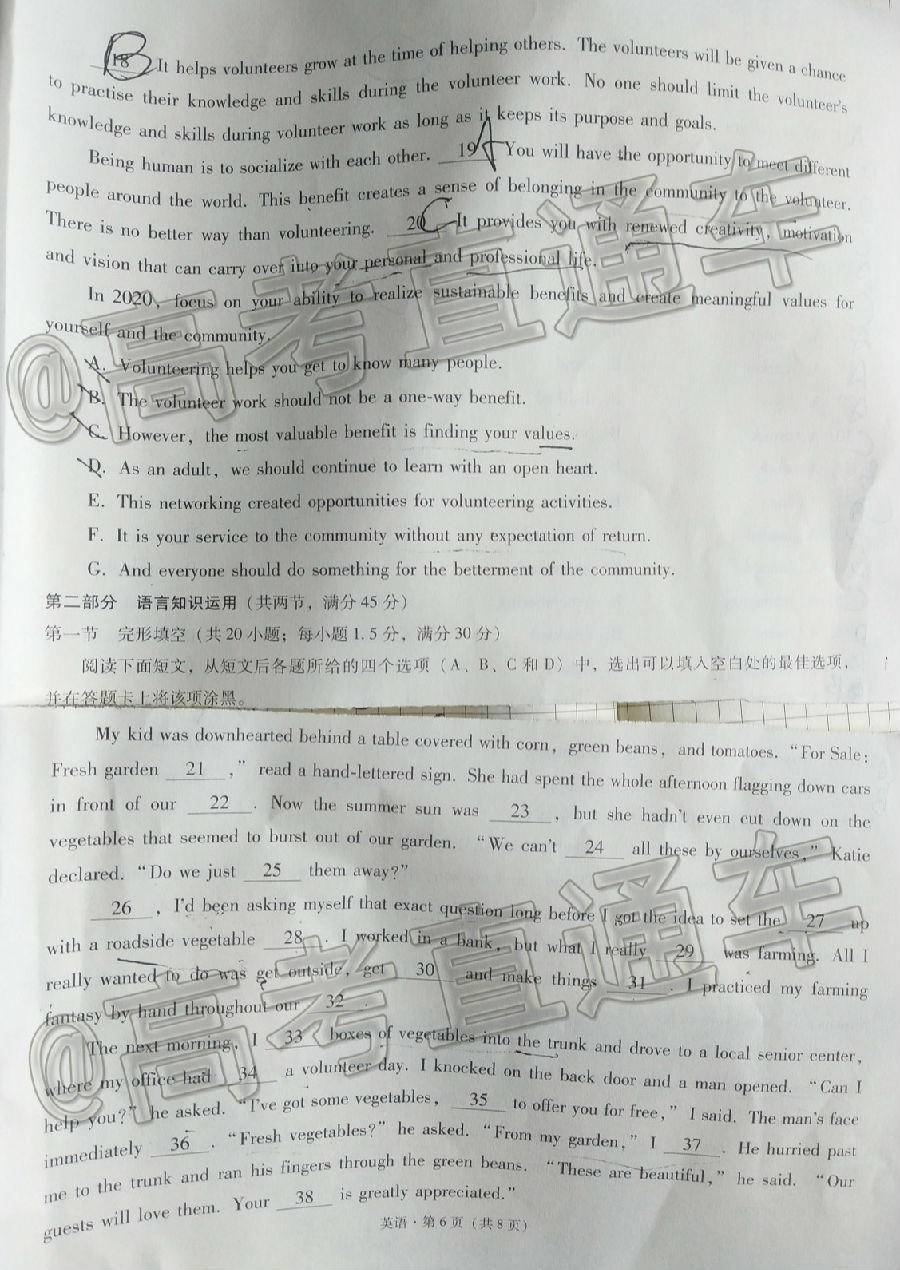 18 B It helps volunteers grow at the time of helping others. The volunteers will be given a chance
to practise their knowledge and skills during the volunteer work. No one should limit the volunteer's
knowledge and skills during volunteer work as long as it keeps its purpose and goals.
Being human is to socialize with each other. 19 A You will have the opportunity to meet different
people around the world. This benefit creates a sense of belonging in the community to the volunteer.
There is no better way than volunteering. 20 C It provides you with renewed creativity, motivation
and vision that can carry over into your personal and professional life.
In 2020, focus on your ability to realize sustainable benefits and create meaningful values for
yourself and the community.
A. Volunteering helps you get to know many people.
B. The volunteer work should not be a one-way benefit.
C. However, the most valuable benefit is finding your values.
D. As an adult, we should continue to learn with an open heart.
E. This networking created opportunities for volunteering activities.
F. It is your service to the community without any expectation of return.
G. And everyone should do something for the betterment of the community.
第二部分 语言知识运用(共两节,满分45分)
第一节 完形填空(共20小题;每小题1.5分,满分30分)
阅读下面短文,从短文后各题所给的四个选项(A、B、C和D)中,选出可以填入空白处的最佳选项,
并在答题卡上将该项涂黑。
My kid was downhearted behind a table covered with corn, green beans, and tomatoes. "For Sale:
Fresh garden 21 ," read a hand-lettered sign. She had spent the whole afternoon flagging down cars
in front of our 22 . Now the summer sun was 23 , but she hadn't even cut down on the
vegetables that seemed to burst out of our garden. "We can't 24 all these by ourselves," Katie
declared. "Do we just 25 them away?"
26 , I'd been asking myself that exact question long before I got the idea to set the 27 up
with a roadside vegetable 28 . I worked in a bank, but what I really 29 was farming. All I
really wanted to do was get outside, get 30 and make things 31 . I practiced my farming
fantasy by hand throughout our 32 .
The next morning, I 33 boxes of vegetables into the trunk and drove to a local senior center,
where my office had 34 a volunteer day. I knocked on the back door and a man opened. "Can I
help you?" he asked. "I've got some vegetables, 35 to offer you for free," I said. The man's face
immediately 36 . "Fresh vegetables?" he asked. "From my garden," I 37 . He hurried past
me to the trunk and ran his fingers through the green beans. "These are beautiful," he said. "Our
guests will love them. Your 38 is greatly appreciated."
英语·第6页(共8页)
@高考直通车
@高考直通车